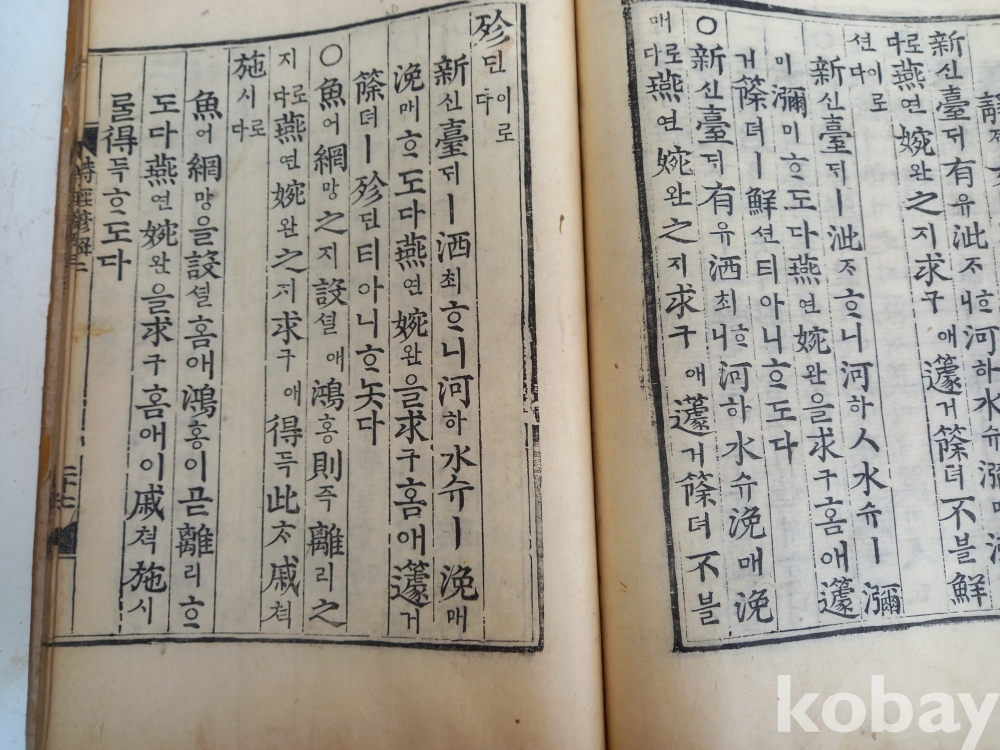 新신臺ᄃᆡ有유泚ᄌᆞᄒᆞ니河하水슈瀰미
로다燕연婉완之지求구애籧거篨뎌不블鮮
션이로다
新신臺ᄃᆡㅣ泚ᄌᆞᄒᆞ니河하人水슈ㅣ瀰
미瀰미ᄒᆞ도다燕연婉완을求구홈애籧
거篨뎌ㅣ鮮션티아니ᄒᆞ도다
○新신臺ᄃᆡ有유洒최ᄒᆞ니河하水슈浼매浼
매로다燕연婉완之지求구애籧거篨뎌不블
殄딘이로다
新신臺ᄃᆡㅣ洒최ᄒᆞ니河하水슈ㅣ浼매
浼매ᄒᆞ도다燕연婉완을求구홈애籧거
篨뎌ㅣ殄딘티아니ᄒᆞ놋다
○魚어網망之지設셜애鴻홍則즉離리之
지로다燕연婉완之지求구애得득此ᄎᆞ戚쳑
施시로다
魚어網망을設셜홈애鴻홍이곧離리ᄒᆞ
도다燕연婉완을求구홈애이戚쳑施시
ᄅᆞᆯ得득ᄒᆞ도다
詩經諺解二
kobay